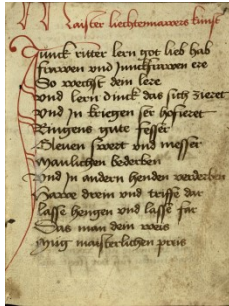 Maister liechtenawers kunst
Junck ritter lern got lieb hab
frawen vnd Junckfrawen ere
So wechst dein lere
vnd lern dinck das dich zieret
vnd Jn kriegen ser hofieret
Ringens gute fesser
Gleuen swert vnd messer
Manlichen bederben
Vnd in andern henden verderben
Hawe drein vnd triffe dar
lasse hengen vnd lasse far
Das man dein weis
Mug maisterlichen preis